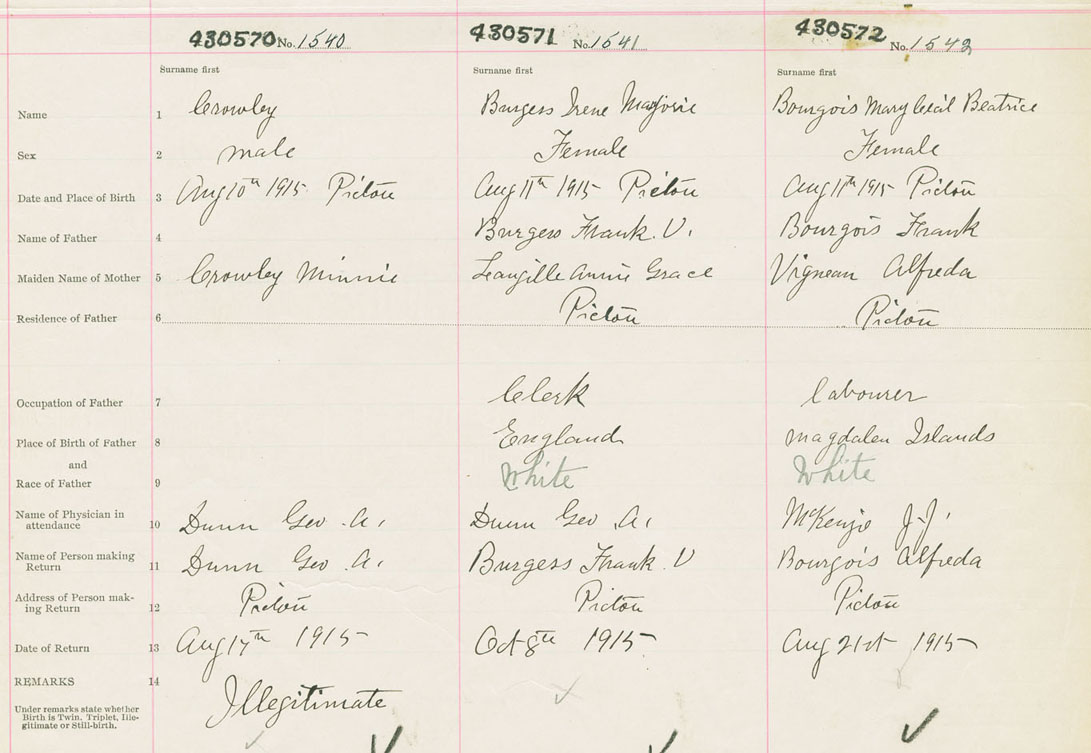 430570 No. 1540 430571 No. 1541 430572 No. 1542
Surname first Surname first Surname first
Name 1 Crowley Burgess Irene Marjorie Bourgois Mary Beatrice
Sex 2 Male Female Female
Date and Place of Birth 3 Aug 10th 1915 Pictou Aug 11th 1915 Pictou Aug 11th 1915 Pictou
Name of Father 4 Burgess Frank. V. Bourgois Frank
Maiden Name of Mother 5 Crowley Minnie Langille Annie Grace Vigneau Alfreda
Residence of Father 6 Pictou Pictou
Occupation of Father 7 Clerk Labourer
Place of Birth of Father 8 England Magdalen Islands
and
Race of Father 9 White White
Name of Physician in
attendance 10 Dunn Geo. A. Dunn Geo. A. McKenzie J. J.
Name of Person making
Return 11 Dunn Geo. A. Burgess Frank. V Bourgois Alfreda
Address of Person mak-
ing Return 12 Pictou Pictou Pictou
Date of Return 13 Aug 17th 1915 Oct 8th 1915 Aug 21st 1915
REMARKS 14
Illegitimate
Under remarks state whether
Birth is Twin. Triplet, Ille-
gitimate or Still-birth.